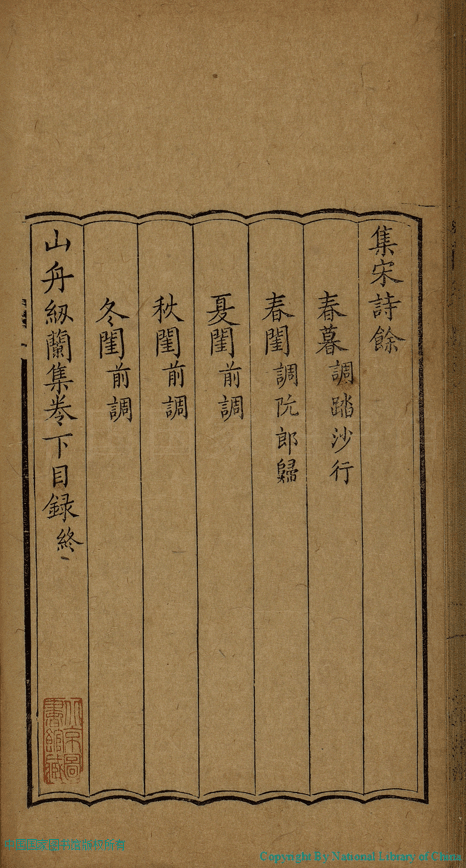 集宋詩餘
春暮調踏沙行
春閨調阮郎歸
夏閨前調
秋閨前調
冬閨前調
山舟紉蘭集卷下目録終
Copyright By National Library of China